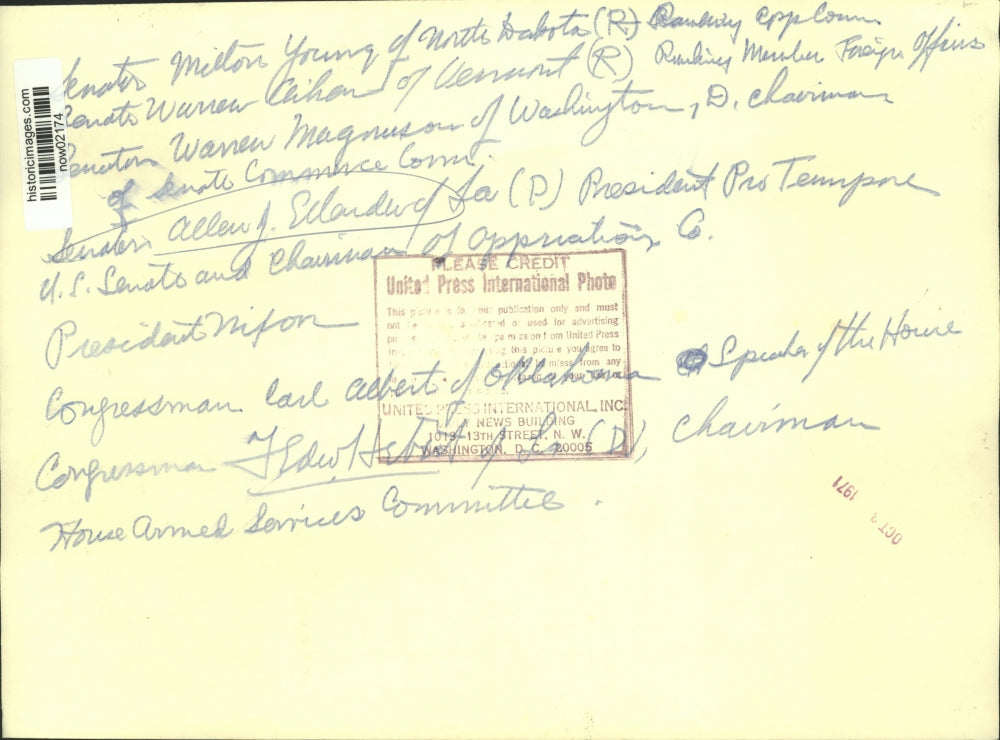 Senator Milton Young of North Dakota (R) Ranking App Comm
Senator Warren Aiken of Vermont (R) Ranking Member Foreign Affairs
Senator Warren Magnuson of Washington, D. chairman
of Senate Commerce Comm.
Senator Allen J. Ellender of La (D) President Pro Tempore
U.S. Senate and Chairman of Appropriations Co.
President Nixon
Congressman Carl Albert of Oklahoma Speaker of the House
Congressman F Edw Hebert of La (D) Chairman
House Armed Services Committee.
historicimages.com
now02174
PLEASE CREDIT
United Press International Photo
This picture is for your publication only and must
not be used for advertising
permission from United Press
this picture you agree to
from any
UNITED PRESS INTERNATIONAL, INC.
NEWS BUILDING
1013-13TH STREET, N. W.
WASHINGTON, D. C. 20005
OCT 1971